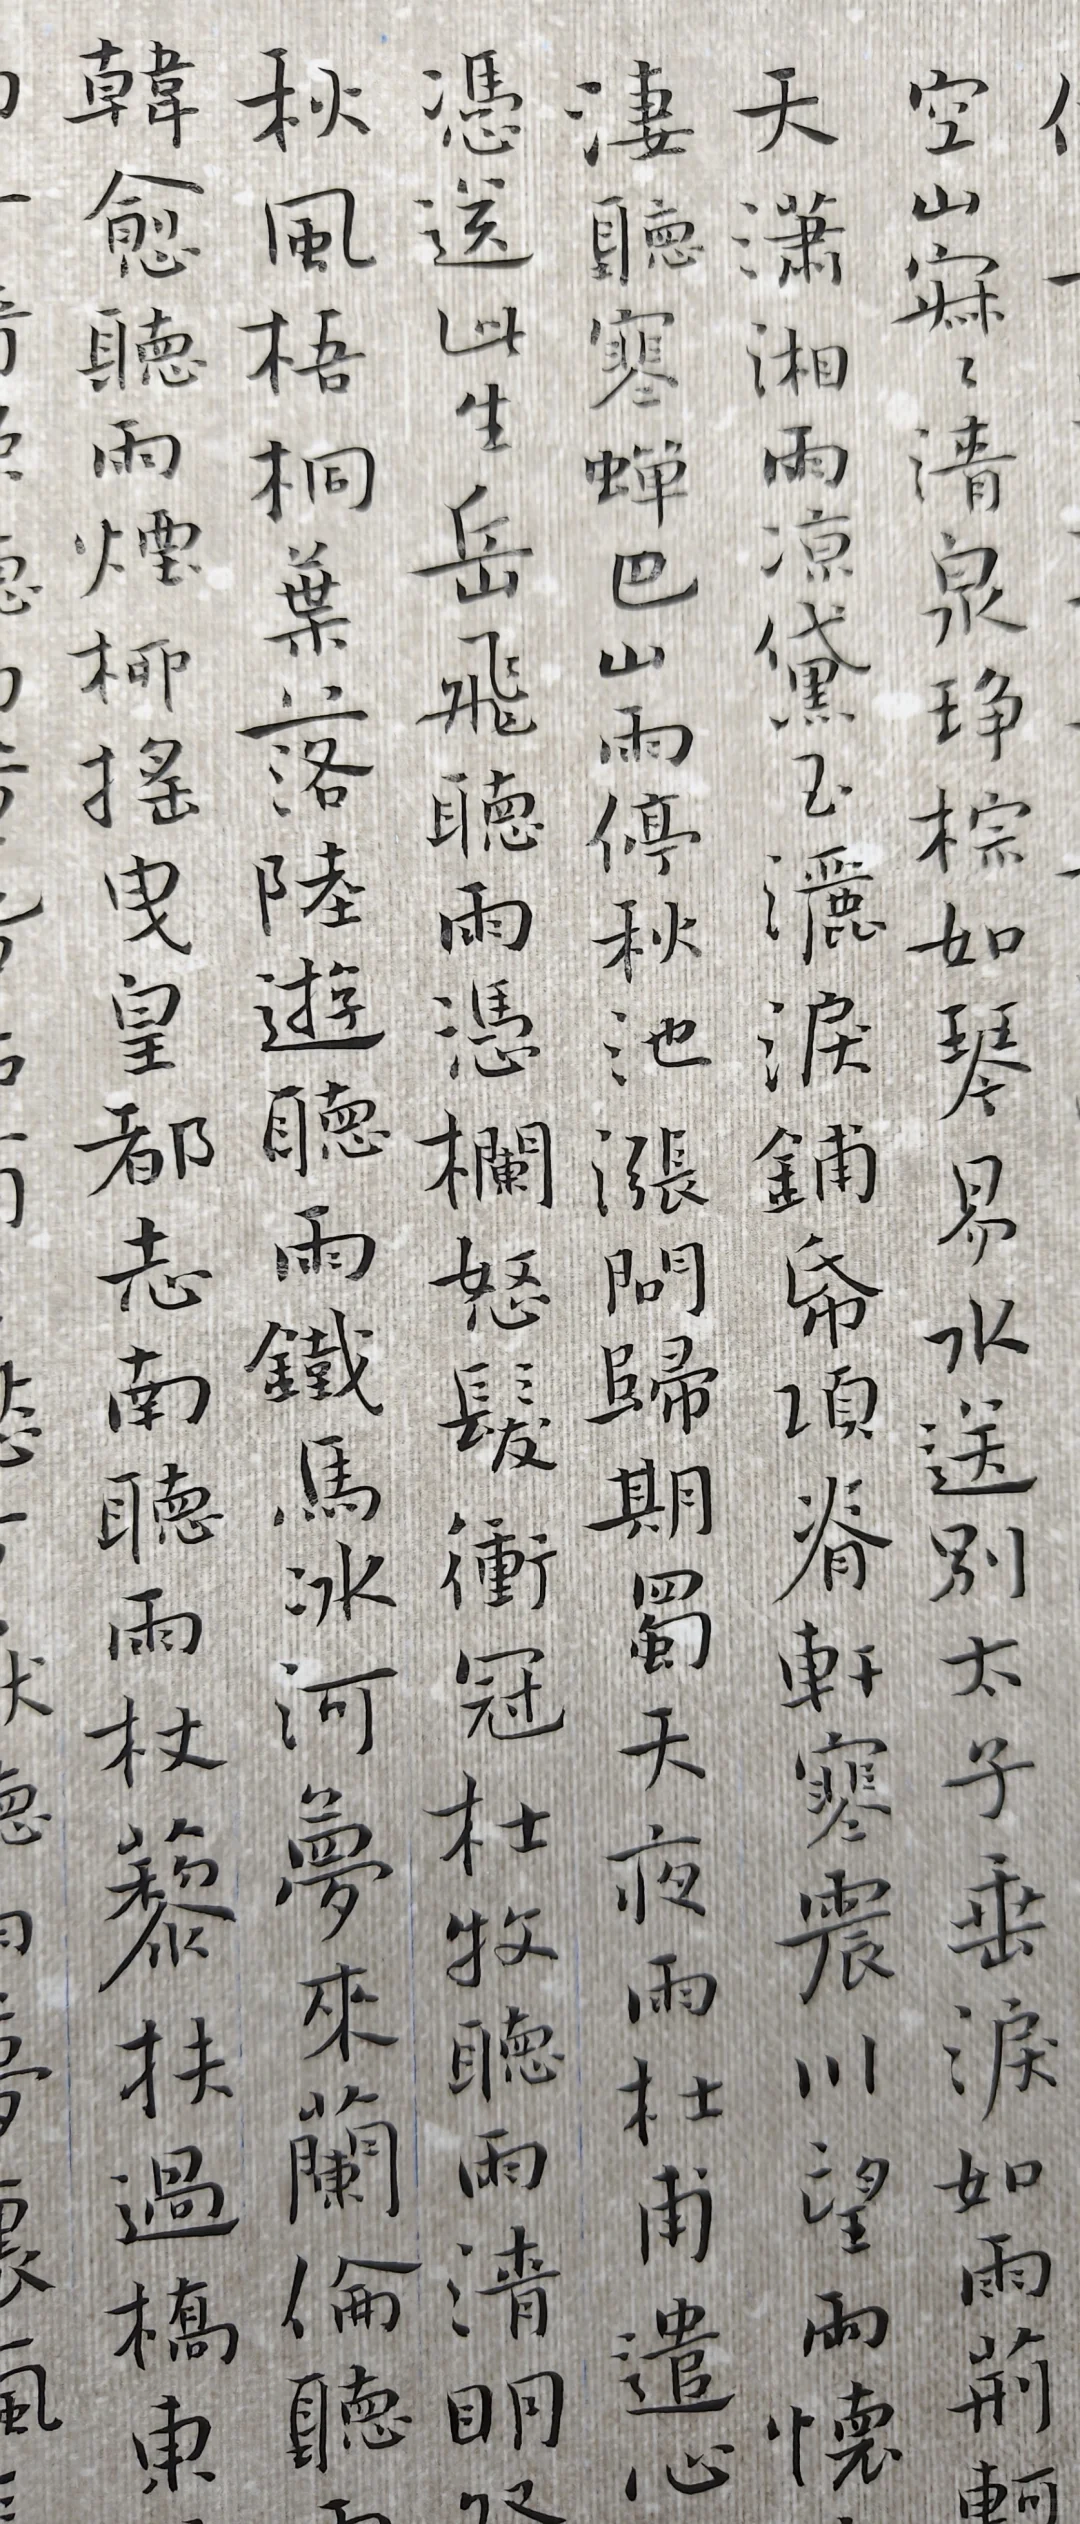 空山寂〻清泉琤琮如琴易水送別太子垂淚如雨荊軻
天瀟湘雨凉黛玉灑淚鋪帋項脊軒寒震川望雨懷
淒聽寒蟬巴山雨停秋池漲問歸期蜀天夜雨杜甫遣心
憑送此生岳飛聽雨憑欄怒髮衝冠杜牧聽雨清明
秋風梧桐葉落陸遊聽雨鐵馬冰河夢來蘭倫聽
韓愈聽雨煙柳搖曳皇都志南聽雨杖藜扶過橋東